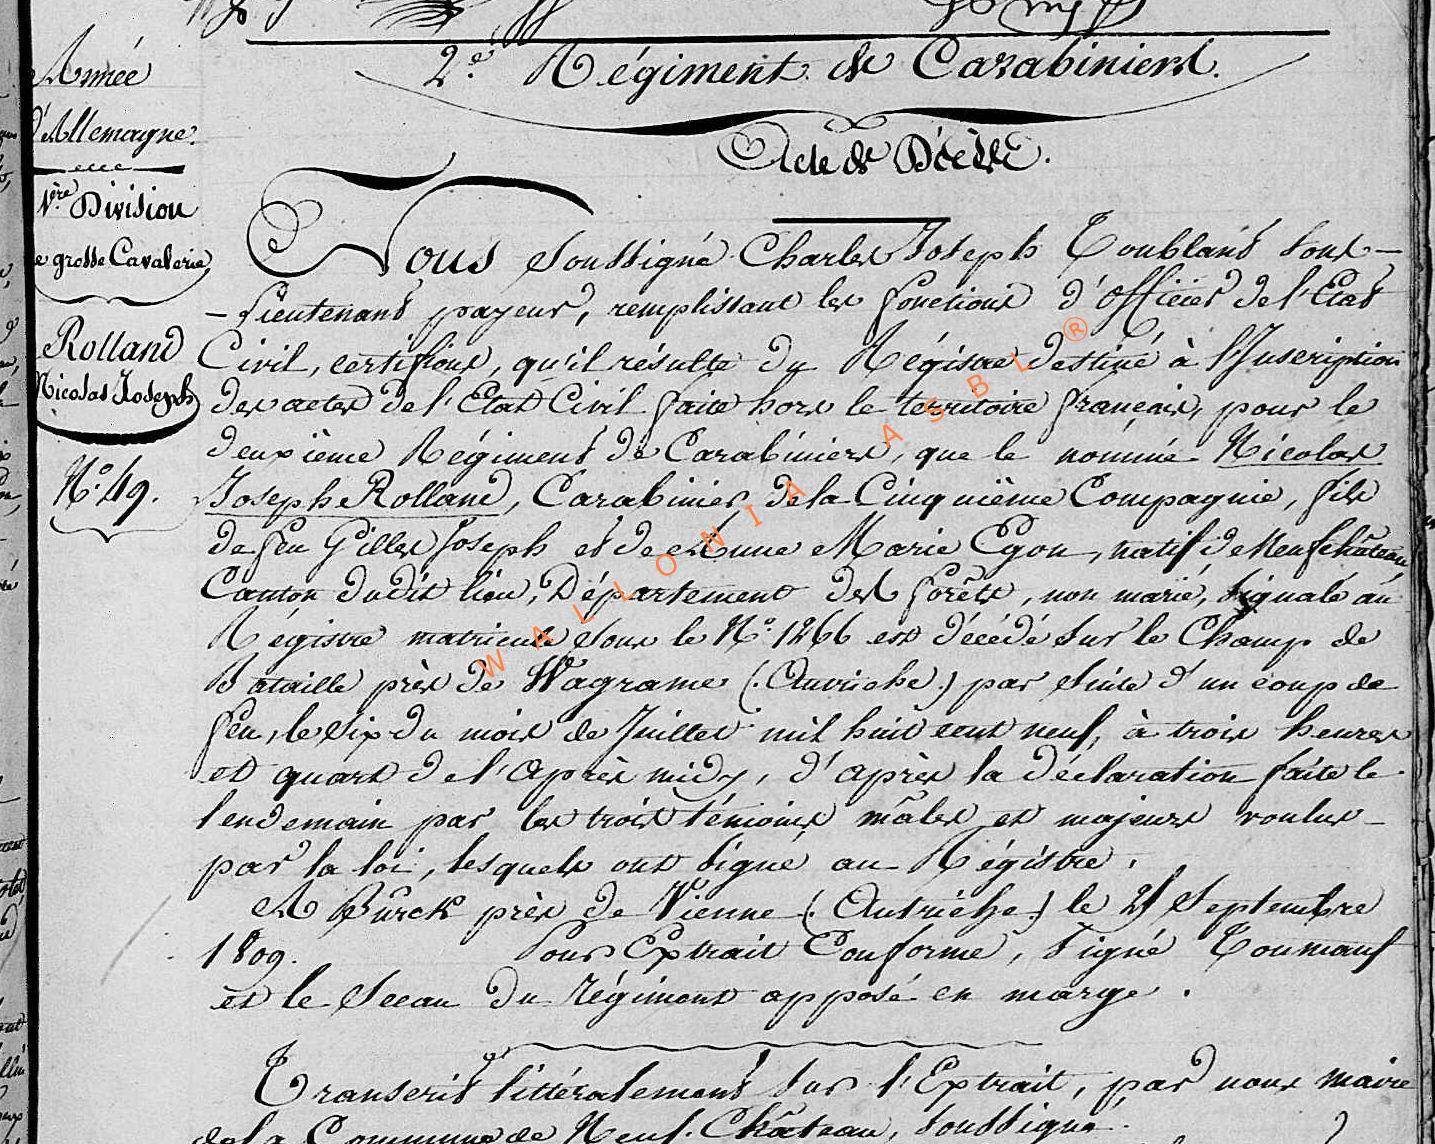 Armée
d'Allemagne.
1.ère Division
de grosse Cavalerie
Rolland
Nicolas Joseph
N.o 49.
2.e Régiment de Carabiniers.
Acte de Décès.
Nous soussigné Charles Joseph Toublans sous-
-Lieutenant payeur, remplissant les fonctions d'officier de l'Etat
Civil, certifions, qu'il résulte du Régistre destiné à l'Inscription
des actes de l'Etat Civil faite hors le territoire français, pour le
deuxième Régiment de Carabiniers, que le nommé Nicolas
Joseph Rolland, Carabinier de la Cinquième Compagnie, fils
de feu Gilles Joseph et de Anne Marie Egon, natif de Neufchâteau
Canton dudit lieu, Département des forêts, non marié, signalé au
Régistre matricule sous le N.o 1266 est décédé sur le Champ de
Bataille près de Wagrame (. Autriche .) par suite d'un coup de
feu, le six du mois de Juillet mil huit cent neuf, à trois heures
et quart de l'après midy, d'après la déclaration faite le
lendemain par les trois témoins mâles et majeurs voulus
par la loi, lesquels ont signé au Régistre.
A Bürck près de Vienne (. Autriche .) le 21 Septembre
1809. Pour Extrait Conforme, Signé
et le Sceau du régiment apposé en marge.
Transcrit littéralement sur l'Extrait, par nous maire
de la Commune de Neuf-Château, soussigné.
WALLONIA ASBL ®